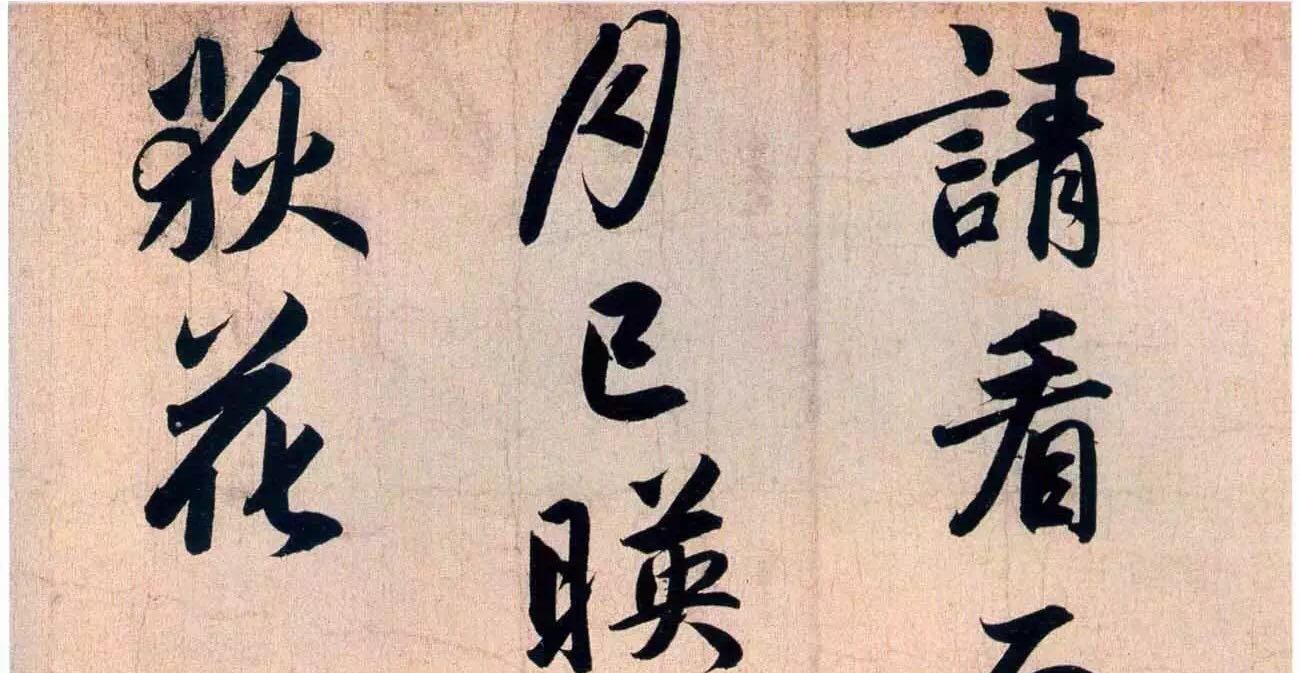 請看石
月已暎
荻花